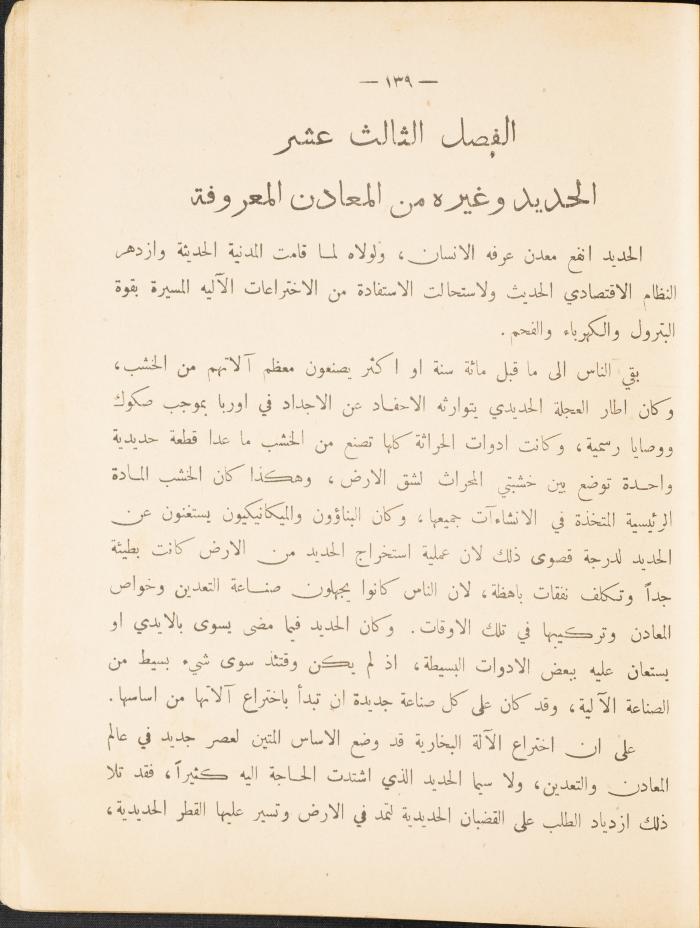 — ١٣٩ —
الفصل الثالث عشر
الحديد وغيره من المعادن المعروفة
الحديد انفع معدن عرفه الانسان، ولولاه لما قامت المدنية الحديثة وازدهر
النظام الاقتصادي الحديث ولاستحالت الاستفادة من الاختراعات الآليه المسيرة بقوة
البترول والكهرباء والفحم.
بقي الناس الى ما قبل مائة سنة او اكثر يصنعون معظم آلاتهم من الخشب،
وكان اطار العجلة الحديدي يتوارثه الاحفاد عن الاجداد في اوربا بموجب صكوك
ووصايا رسمية، وكانت ادوات الحراثة كلها تصنع من الخشب ما عدا قطعة حديدية
واحدة توضع بين خشبتي المحراث لشق الارض، وهكذا كان الخشب المادة
الرئيسية المتخذة في الانشاءآت جميعها، وكان البناؤون والميكانيكيون يستغنون عن
الحديد لدرجة قصوى ذلك لان عملية استخراج الحديد من الارض كانت بطيئة
جداً وتكلف نفقات باهظة، لان الناس كانوا يجهلون صناعة التعدين وخواص
المعادن وتركيبها في تلك الاوقات. وكان الحديد فيما مضى يسوى بالايدي او
يستعان عليه ببعض الادوات البسيطة، اذ لم يكن وقتئذ سوى شيء بسيط من
الصناعة الآلية، وقد كان على كل صناعة جديدة ان تبدأ باختراع آلاتها من اساسها.
على ان اختراع الآلة البخارية قد وضع الاساس المتين لعصر جديد في عالم
المعادن والتعدين، ولا سيما الحديد الذي اشتدت الحاجة اليه كثيراً، فقد تلا
ذلك ازدياد الطلب على القضبان الحديدية لتمد في الارض وتسير عليها القطر الحديدية،